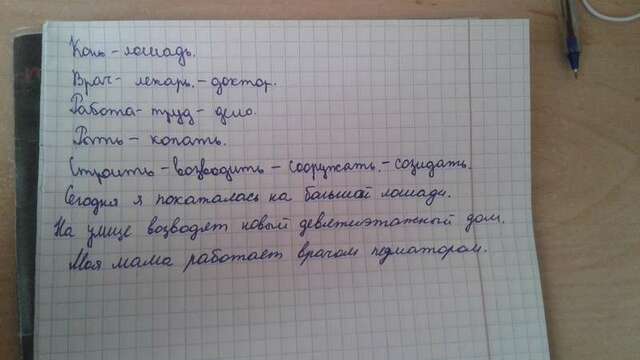 Конь - лошадь.
Врач - лекарь. - доктор.
Работа - труд - дело.
Рыть - копать.
Строить - возводить - сооружать. - созидать.
Сегодня я покаталась на большой лошади.
На улице возводят новый девятиэтажный дом.
Моя мама работает врачом педиатором.